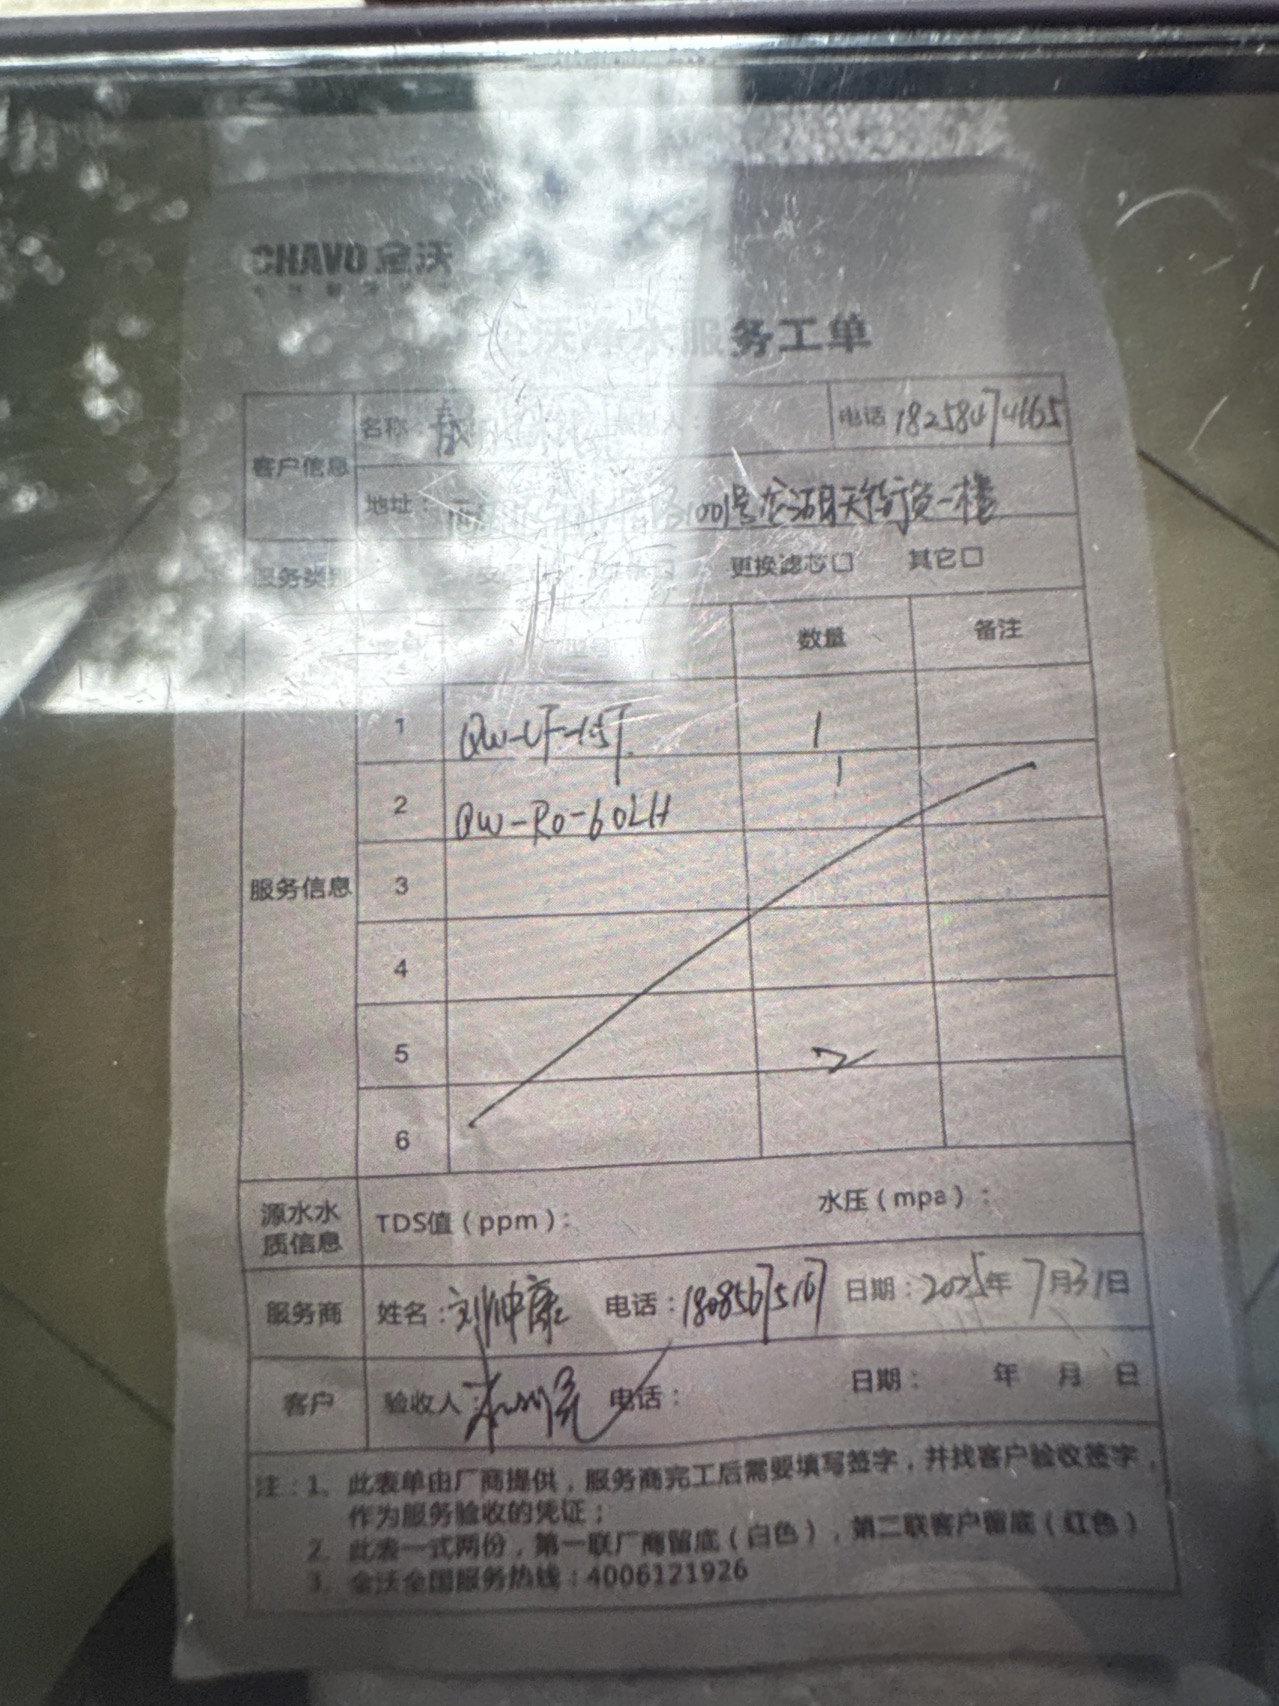 CHAVO 金沃
沃净水服务工单
客户信息
名称：
电话 18258474665
地址：
1001号龙湖天街负一楼
服务类别
更换滤芯□ 其它□
型号 数量 备注
服务信息
1 QW-UF-15T 1
2 QW-RO-60LH 1
3
4
5 2
6
源水水质信息
TDS值（ppm）： 水压（mpa）：
服务商 姓名：刘帅康 电话：18085675167 日期：2025年7月31日
客户 验收人： 电话： 日期： 年 月 日
注：1、此表单由厂商提供，服务商完工后需要填写签字，并找客户验收签字，
作为服务验收的凭证；
2、此表一式两份，第一联厂商留底（白色），第二联客户留底（红色）
3、金沃全国服务热线：4006121926